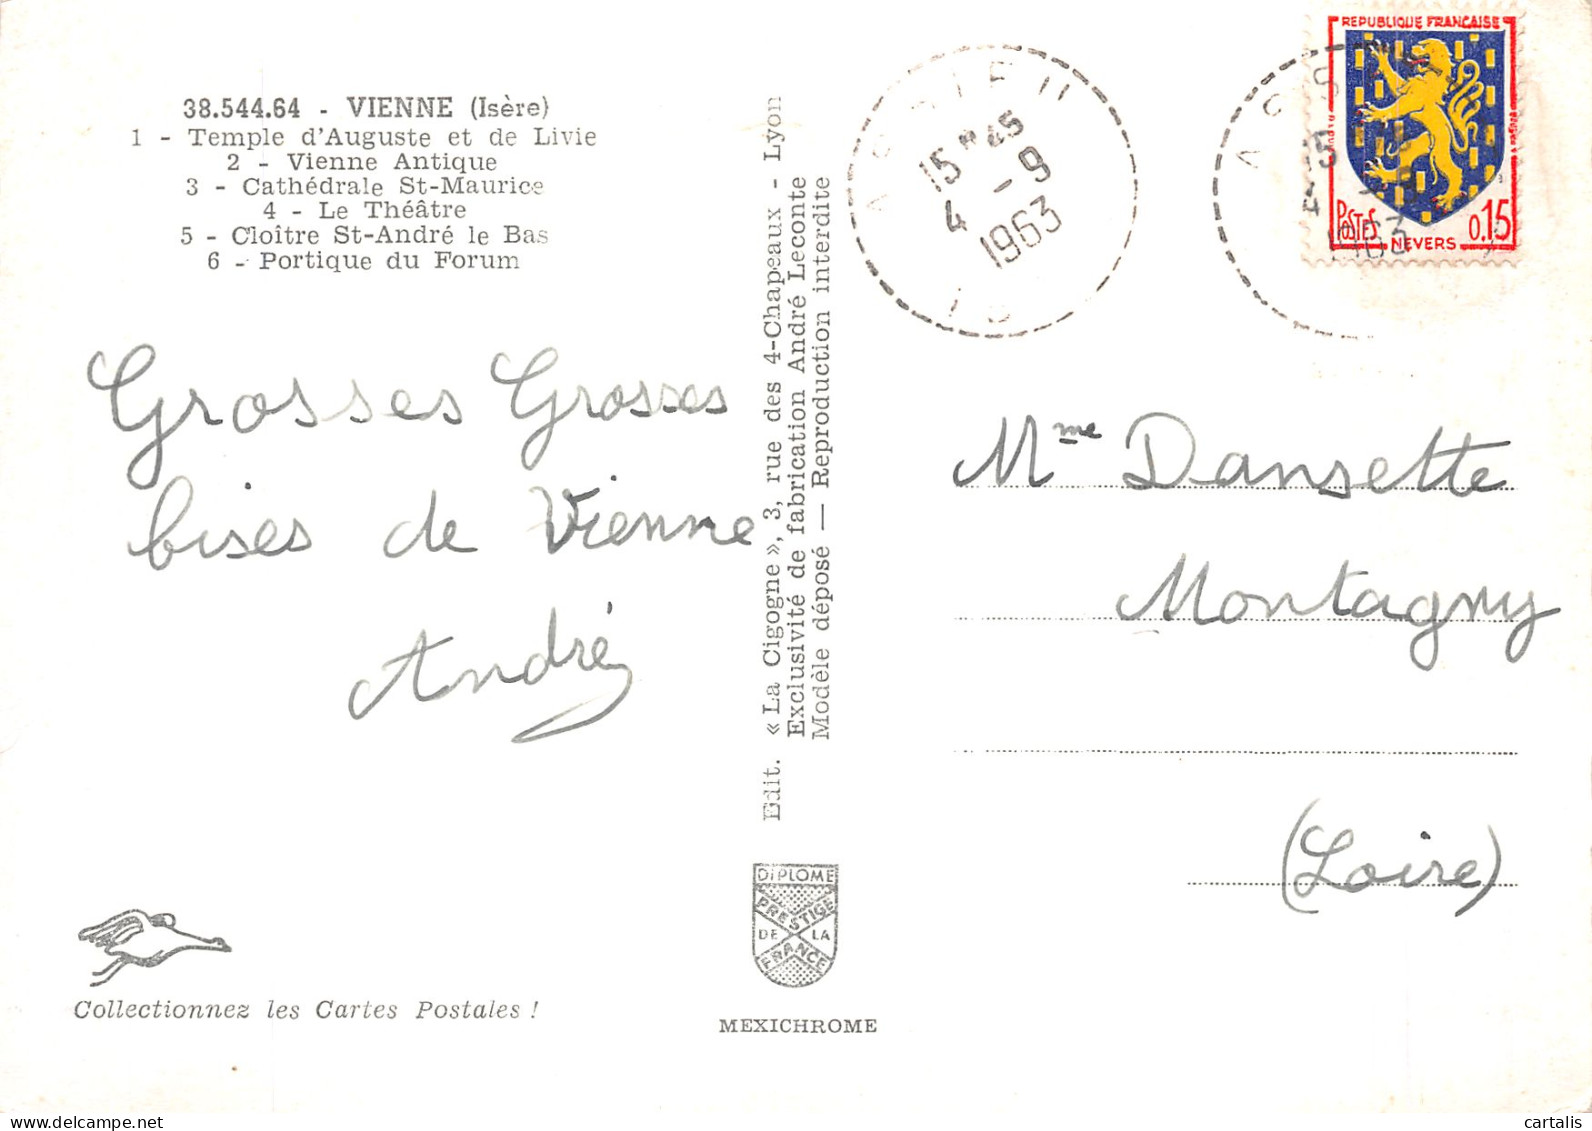 38.544.64 - VIENNE (Isère)
1 - Temple d'Auguste et de Livie
2 - Vienne Antique
3 - Cathédrale St-Maurice
4 - Le Théâtre
5 - Cloître St-André le Bas
6 - Portique du Forum
Grosses Grosses
bises de Vienne
André
Collectionnez les Cartes Postales !
Edit. « La Cigogne », 3, rue des 4-Chapeaux - Lyon
Exclusivité de fabrication André Leconte
Modèle déposé — Reproduction interdite
DIPLOME
PRESTIGE
DE LA
FRANCE
MEXICHROME
15 H 45
4 - 9
1963
REPUBLIQUE FRANCAISE
POSTES 0.15
NEVERS
15
4
1963
Mme Dansette
Montagny
(Loire)
www.delcampe.net
cartalis